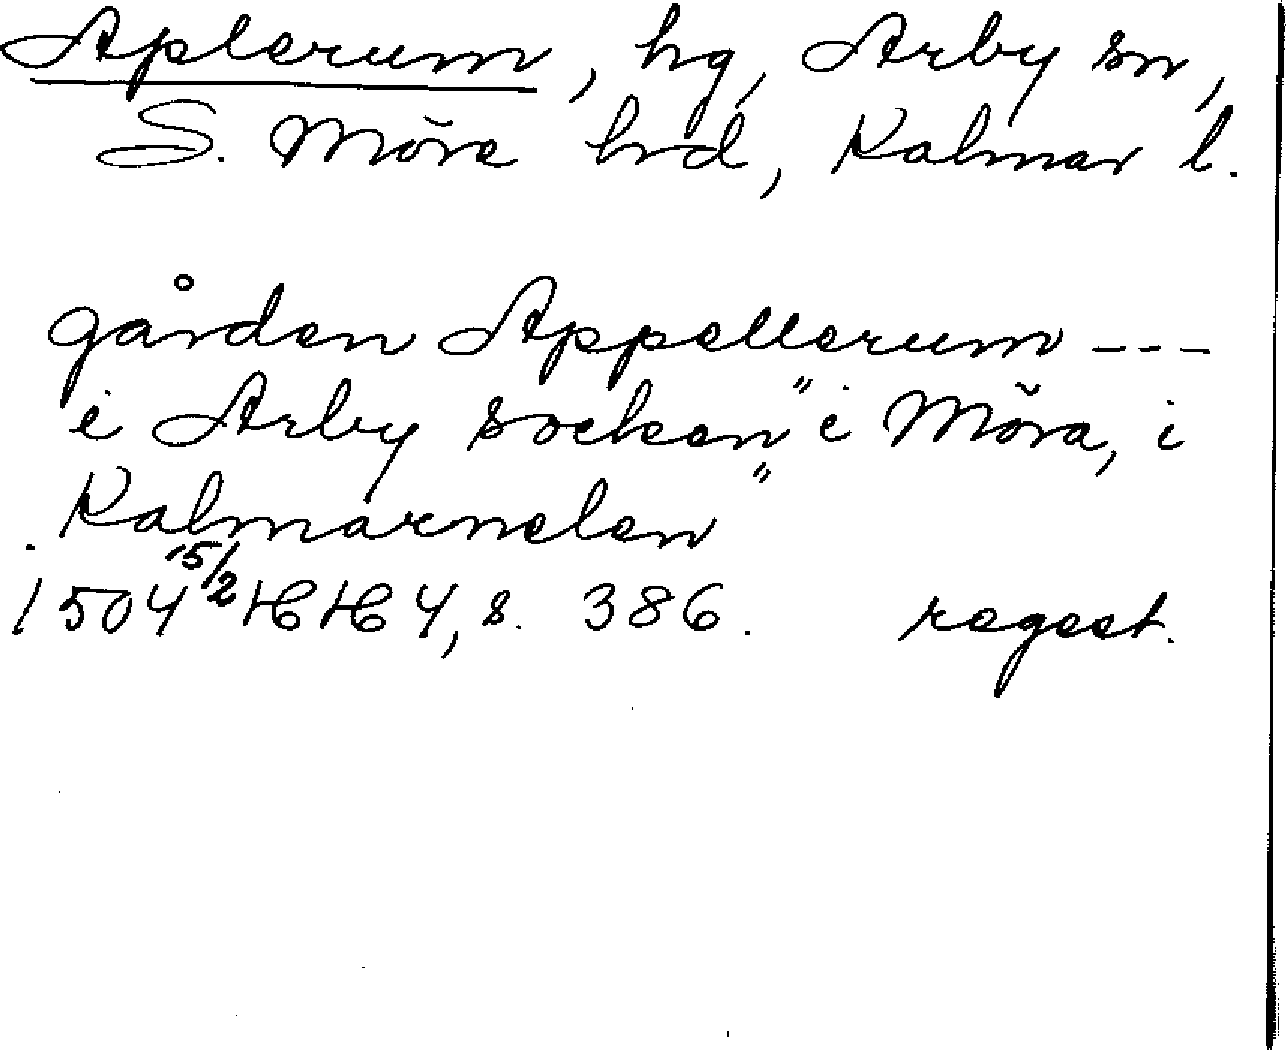 Aplerum, hg, Arby sn,
S. Möre hrd, Kalmar l.
gården Appellerum ---
i Arby socken" i Möra, i
Kalmarnelen"
1504 15/2 HH 4, s. 386. regest.